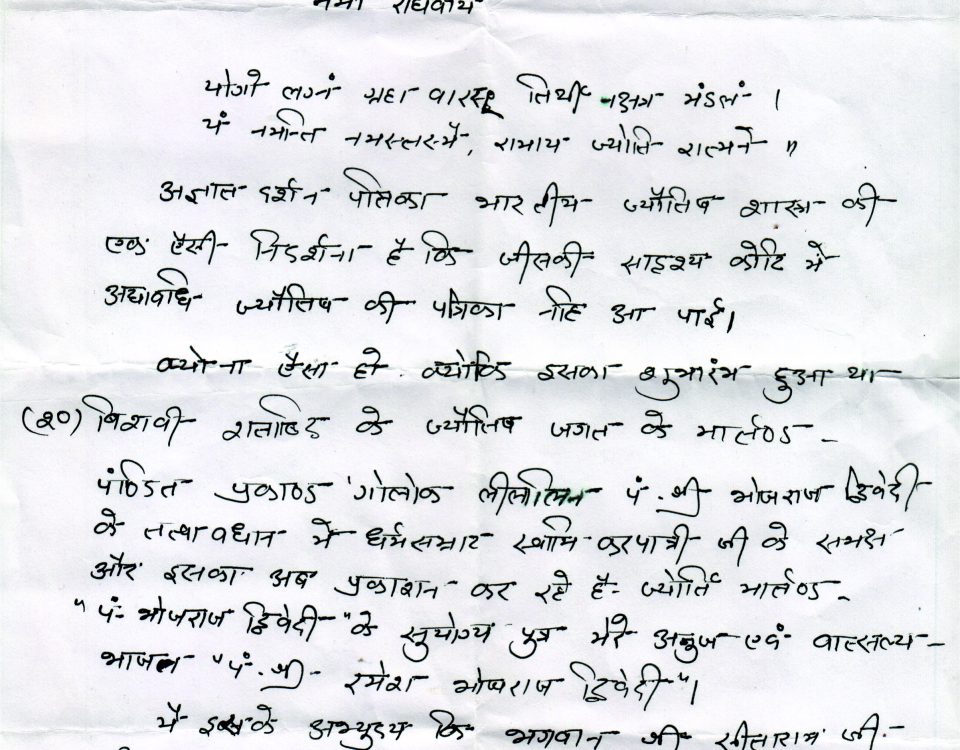 नमो राघवाय
योगो लग्नं ग्रहा वारस्तु तिथी नक्षत्र मंडलं ।
यं नमन्ति नमस्तस्मै, रामाय ज्योति रात्मने ॥
अज्ञात दर्शन पत्रिका भारतीय ज्यौतिष शास्त्र की
एक ऐसी निदर्शना है कि जीसकी सादृश्य कोटि में
अद्यावधि ज्यौतिष की पत्रिका नहि आ पाई।
क्यो ना ऐसा हो. क्योकि इसका शुभारंभ हुआ था
(२०) बिशवी शताब्दि के ज्यौतिष जगत के मार्तण्ड -
पंण्डित प्रकाण्ड गोलोक लीलालिन पं. श्री भोजराज द्विवेदी
के तत्वावधान में धर्मसम्राट स्वामि करपात्री जी के समक्ष
और इसका अब प्रकाशन कर रहे है ज्योर्ति मार्तण्ड -
"पं- भोजराज द्विवेदी" के सुयोग्य पुत्र मेरे अनुज एवं वात्सल्य-
भाजन "पं. श्री- रमेश भोजराज द्विवेदी"।
मै इसके अभ्युदय कि भगवान श्री सीताराम जी-